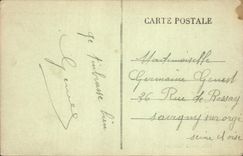 CARTE POSTALE
Je t'embrasse bien
Mademoiselle
Germaine
26 Rue de
Savigny sur orge
Seine et oise